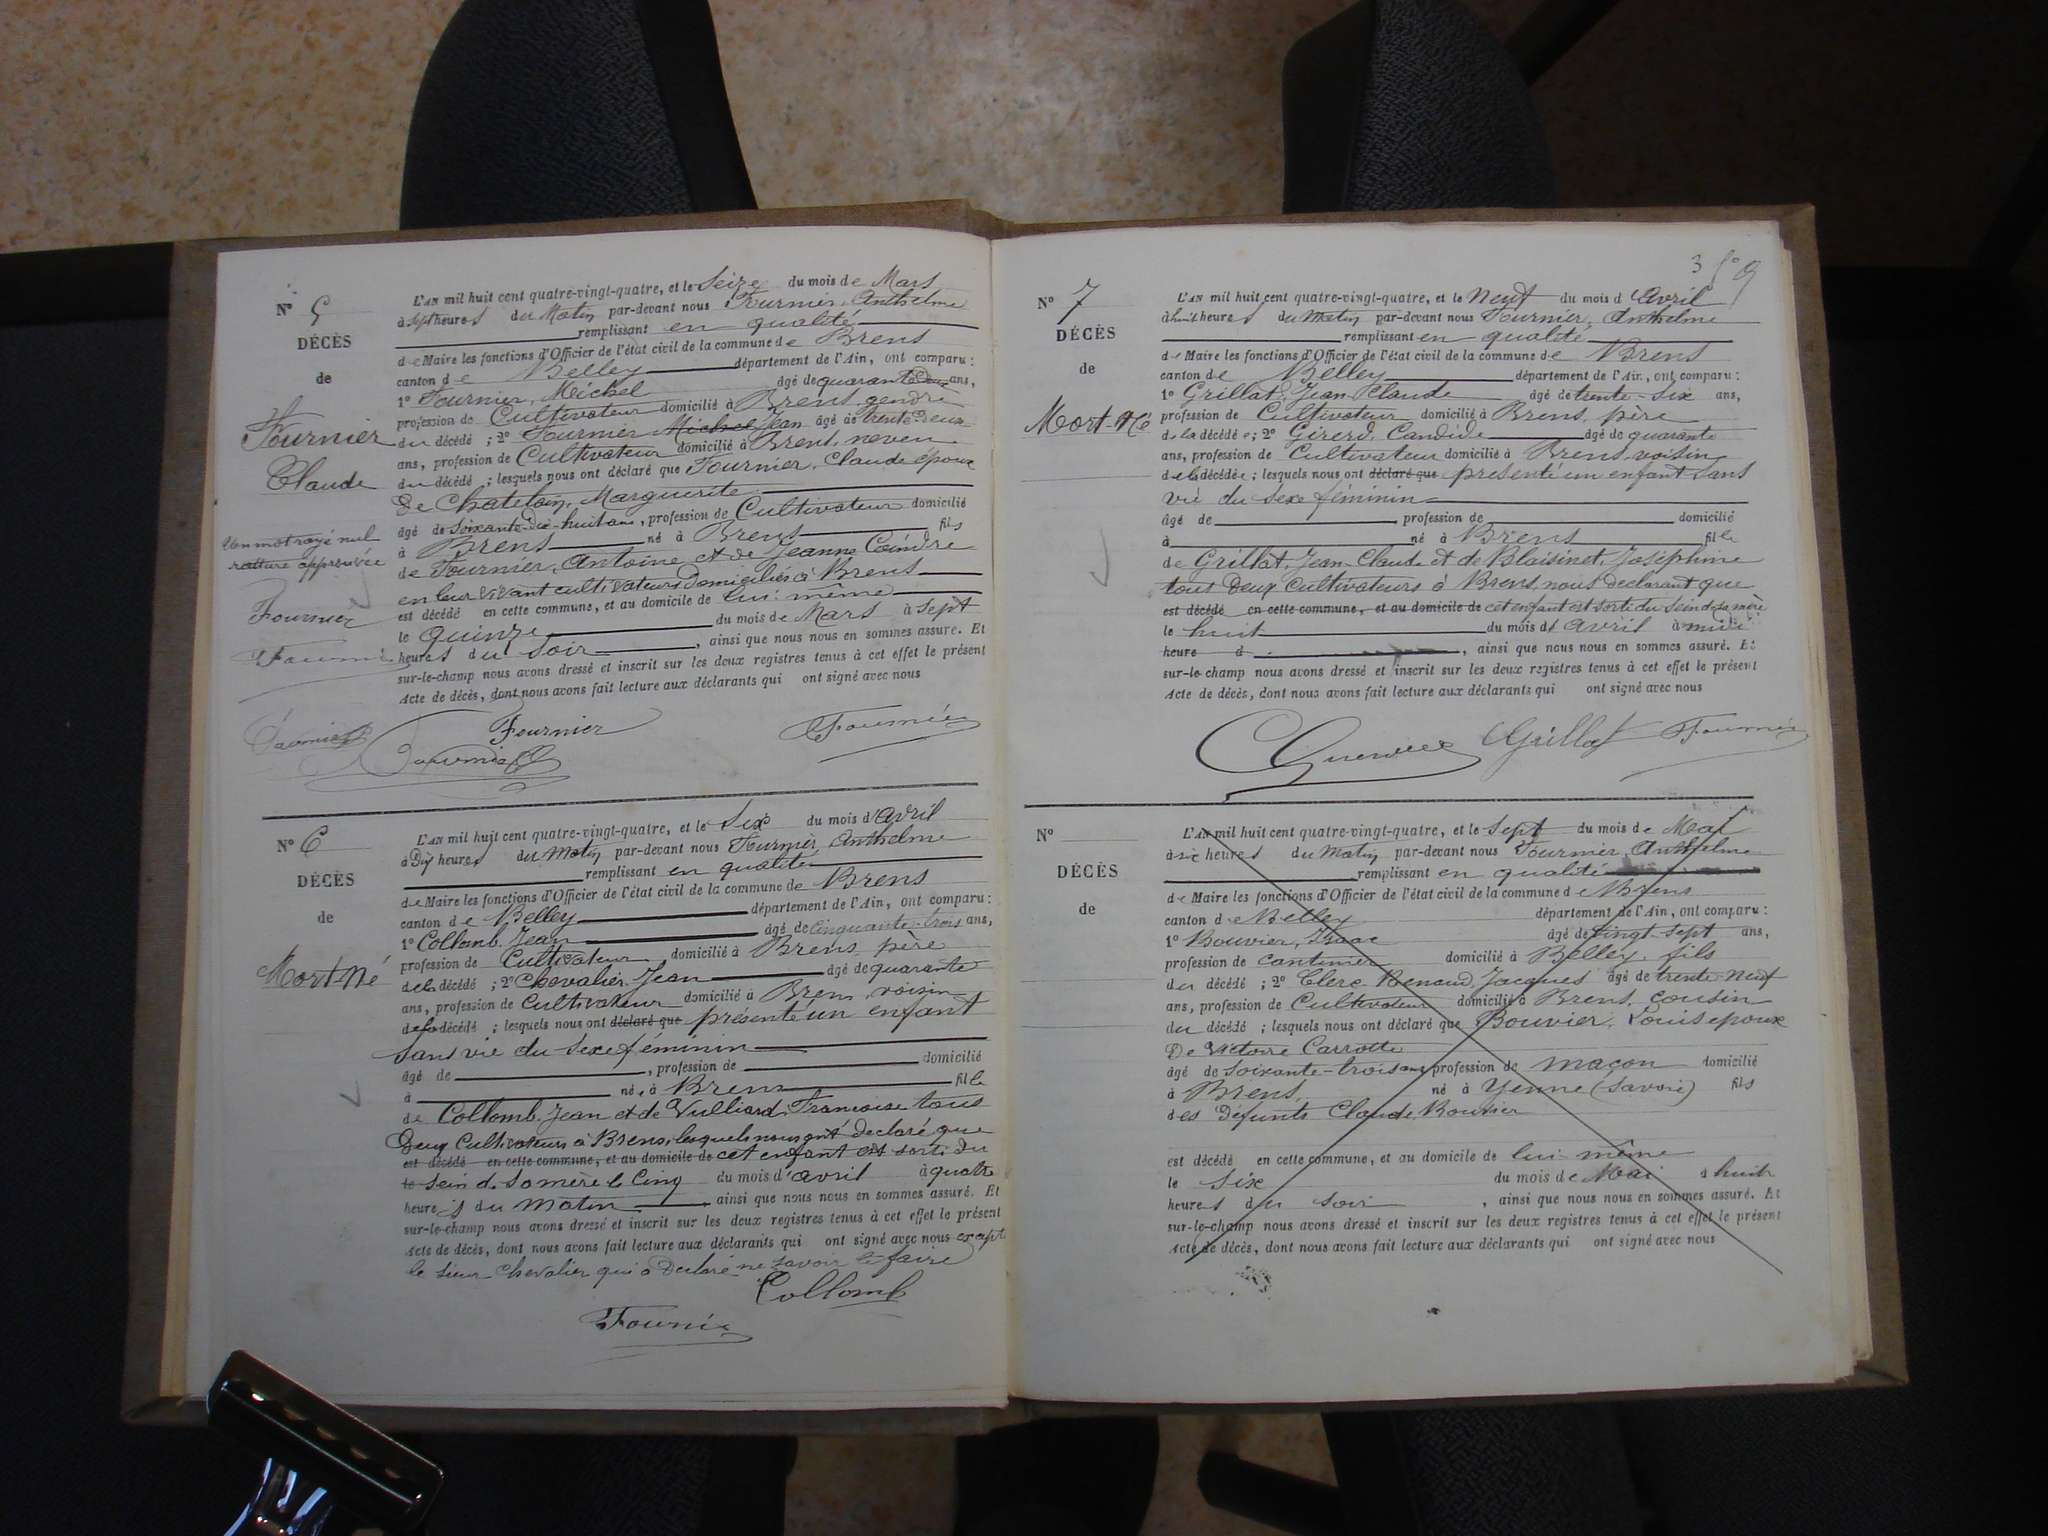 N° 5
DÉCÈS
de
Fournier
Claude
Un mot rayé nul
rature approuvée
Fournier
L'AN mil huit cent quatre-vingt-quatre, et le Seize du mois de Mars
à sept heures du Matin par-devant nous Fournier, Anthelme
remplissant en qualité
de Maire les fonctions d'Officier de l'état civil de la commune de Brens
canton de Belley département de l'Ain, ont comparu :
1° Fournier, Michel âgé de quarante deux ans,
profession de Cultivateur domicilié à Brens, gendre
du décédé ; 2° Fournier Michel Jean âgé de trente deux
ans, profession de Cultivateur domicilié à Brens, neveu
du décédé ; lesquels nous ont déclaré que Fournier, Claude époux
De Chatelain, Marguerite
âgé de soixante-dix-huit ans, profession de Cultivateur domicilié
à Brens né à Brens fils
de Fournier, Antoine et de Jeanne Coindre
en leur vivant cultivateurs domiciliés à Brens
est décédé en cette commune, et au domicile de lui-même
le quinze du mois de Mars à sept
heures du soir, ainsi que nous nous en sommes assuré. Et
sur-le-champ nous avons dressé et inscrit sur les deux registres tenus à cet effet le présent
Acte de décès, dont nous avons fait lecture aux déclarants qui ont signé avec nous
Fournier
Fournier
N° 6
DÉCÈS
de
Mort-Né
L'AN mil huit cent quatre-vingt-quatre, et le Six du mois d'Avril
à Dix heures du Matin par-devant nous Fournier, Anthelme
remplissant en qualité
de Maire les fonctions d'Officier de l'état civil de la commune de Brens
canton de Belley département de l'Ain, ont comparu :
1° Collomb, Jean âgé de cinquante-trois ans,
profession de Cultivateur domicilié à Brens, père
de la décédé ; 2° Chevalier, Jean âgé de quarante
ans, profession de Cultivateur domicilié à Brens, voisin
de la décédé ; lesquels nous ont déclaré que présenté un enfant
sans vie du sexe féminin
âgé de , profession de domicilié
à née à Brens fille
de Collomb, Jean et de Vulliard, Françoise tous
Deux Cultivateurs à Brens, lesquels nous ont déclaré que
est décédé en cette commune, et au domicile de cet enfant est sorti du
le sein de sa mère le cinq du mois d'avril à quatre
heures du Matin, ainsi que nous nous en sommes assuré. Et
sur-le-champ nous avons dressé et inscrit sur les deux registres tenus à cet effet le présent
Acte de décès, dont nous avons fait lecture aux déclarants qui ont signé avec nous excepté
le sieur Chevalier qui a déclaré ne savoir le faire
Collomb
Fournier
3
N° 7
DÉCÈS
de
Mort-Né
L'AN mil huit cent quatre-vingt-quatre, et le Neuf du mois d'Avril
à huit heures du Matin par-devant nous Fournier, Anthelme
remplissant en qualité
de Maire les fonctions d'Officier de l'état civil de la commune de Brens
canton de Belley département de l'Ain, ont comparu :
1° Grillat, Jean Claude âgé de trente-six ans,
profession de Cultivateur domicilié à Brens, père
de la décédée ; 2° Girerd, Candide âgé de quarante
ans, profession de Cultivateur domicilié à Brens, voisin
de la décédée ; lesquels nous ont déclaré que présenté un enfant sans
vie du sexe féminin
âgé de , profession de domicilié
à né à Brens fille
de Grillat, Jean-Claude et de Blaisinet, Joséphine
tous Deux Cultivateurs à Brens, nous déclarant que
est décédé en cette commune, et au domicile de cet enfant est sorti du sein de sa mère
le huit du mois d'avril à midi
heure d , ainsi que nous nous en sommes assuré. Et
sur-le-champ nous avons dressé et inscrit sur les deux registres tenus à cet effet le présent
Acte de décès, dont nous avons fait lecture aux déclarants qui ont signé avec nous
Grillat Fournier
N°
DÉCÈS
de
L'AN mil huit cent quatre-vingt-quatre, et le Sept du mois de Mai
à six heures du Matin par-devant nous Fournier, Anthelme
remplissant en qualité
de Maire les fonctions d'Officier de l'état civil de la commune de Brens
canton de Belley département de l'Ain, ont comparu :
1° Bouvier, Isaac âgé de vingt-sept ans,
profession de cantinier domicilié à Belley, fils
du décédé ; 2° Clerc-Renaud, Jacques âgé de trente-neuf
ans, profession de Cultivateur domicilié à Brens, cousin
du décédé ; lesquels nous ont déclaré que Bouvier, Louis époux
De Victoire Carrotte
âgé de soixante-trois ans profession de maçon domicilié
à Brens, né à Yenne (Savoie) fils
des Défunts Claude Bouvier
est décédé en cette commune, et au domicile de lui-même
le six du mois de Mai à huit
heures du soir, ainsi que nous nous en sommes assuré. Et
sur-le-champ nous avons dressé et inscrit sur les deux registres tenus à cet effet le présent
Acte de décès, dont nous avons fait lecture aux déclarants qui ont signé avec nous